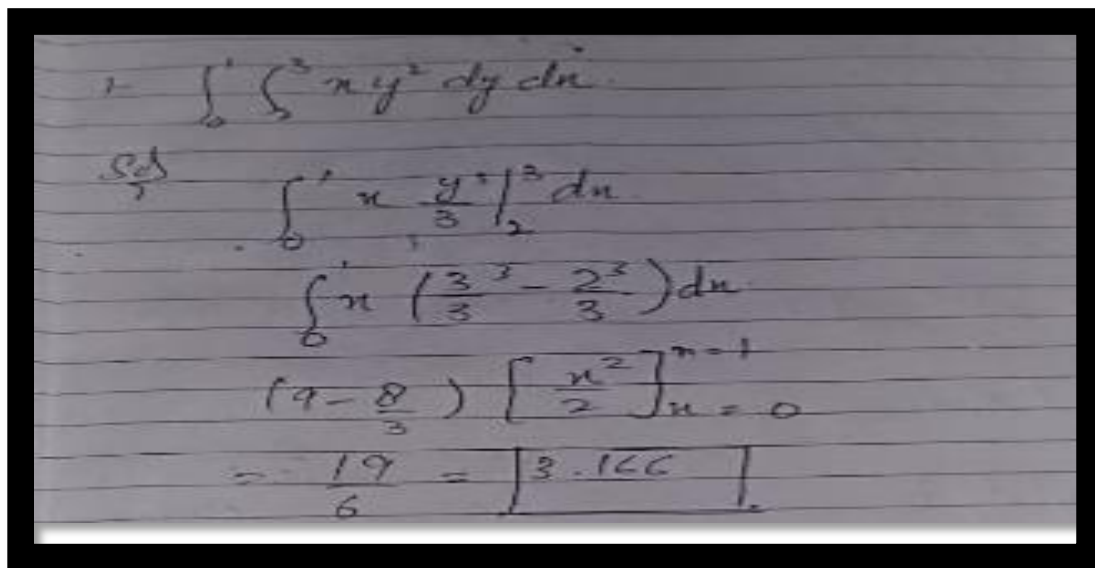 1- ∫₀¹ ∫₂³ x y² dy dx.
Sol
∫₀¹ x y³/3 |₂³ dx
∫₀¹ x (3³/3 - 2³/3) dx
(9 - 8/3) [x²/2]ₓ₌₀ˣ⁼¹
= 19/6 = 3.166